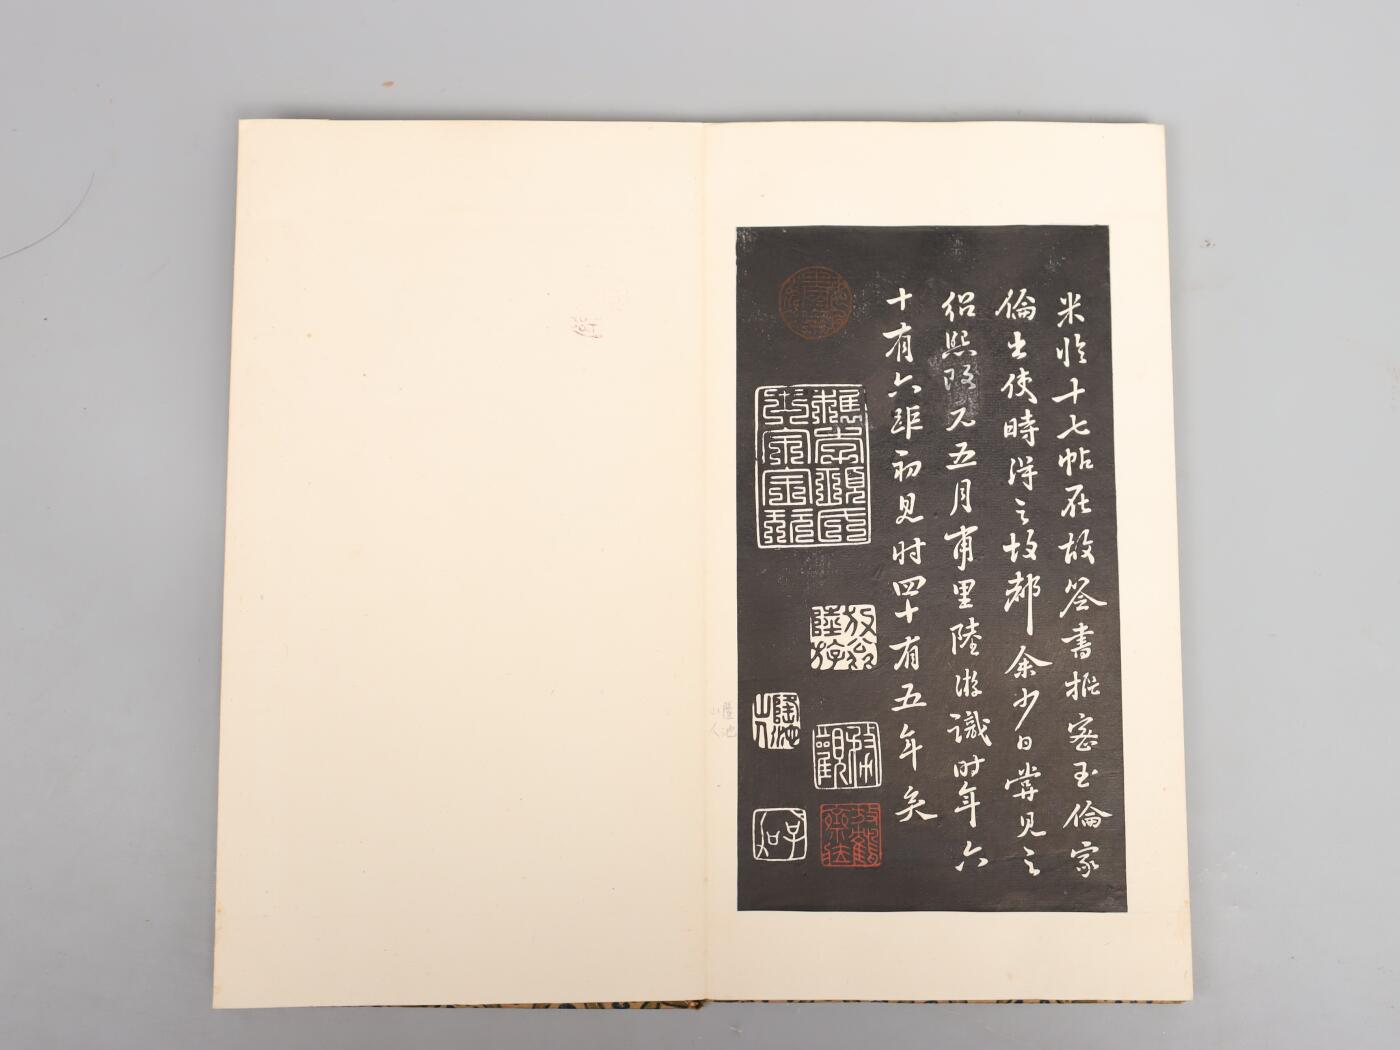 米临十七帖在故签书枢密王倫家
倫出使時得之故都余少日嘗見之
紹熙改元五月甫里陸游識时年六
十有六距初見时四十有五年矣
放翁
陸游